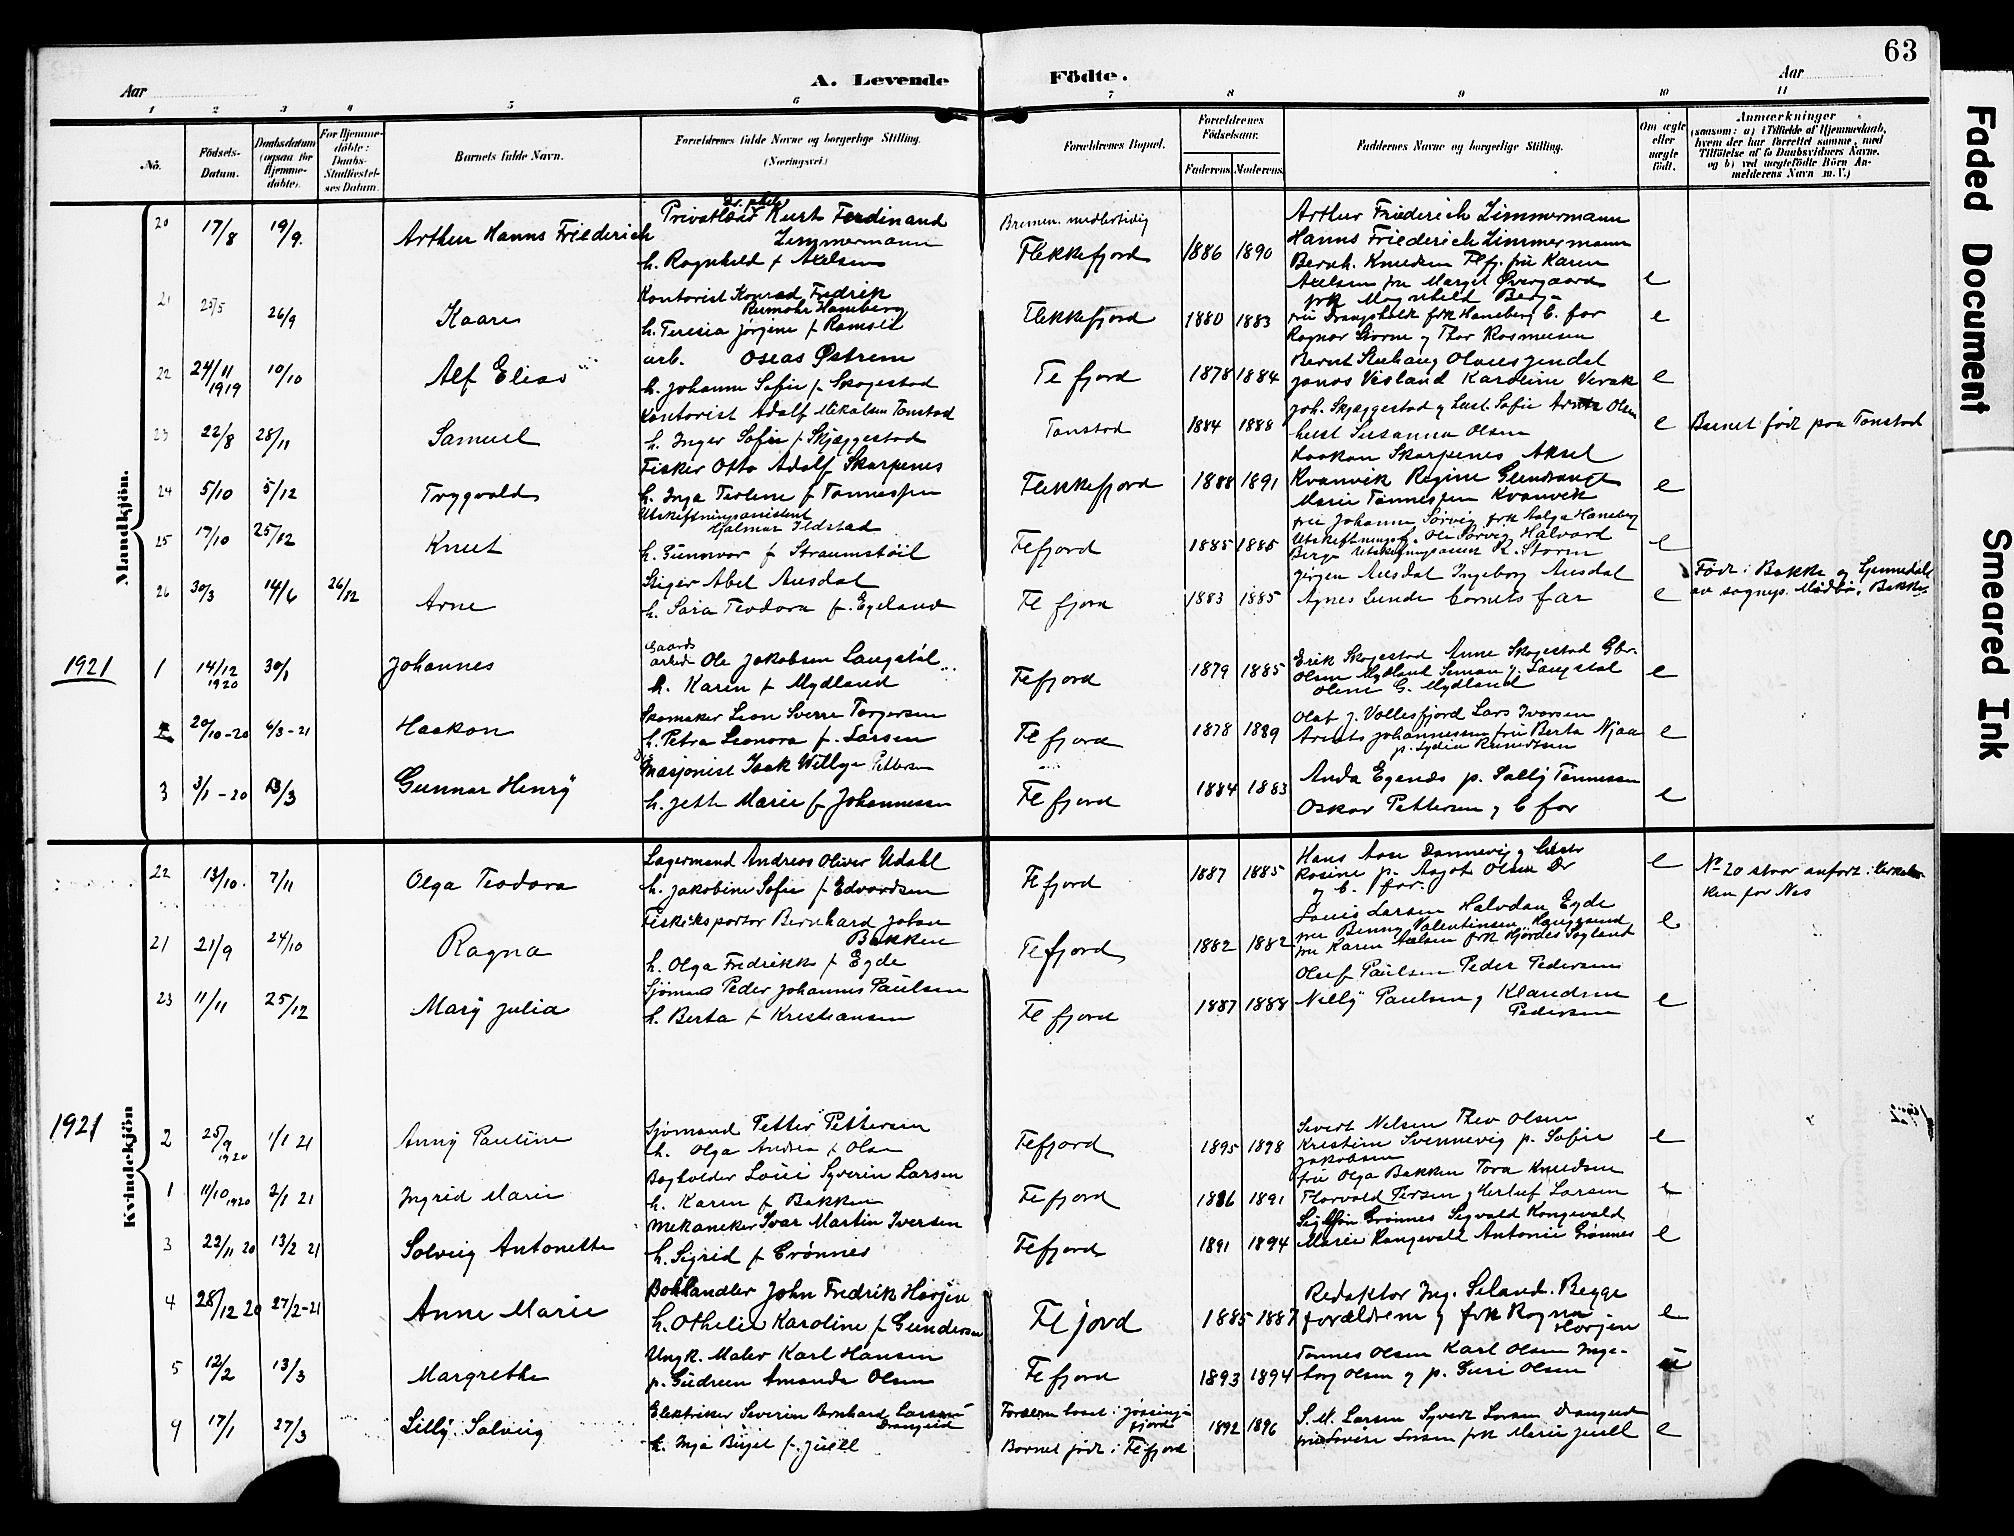 63
Aar
A. Levende Födte.
Aar
1 2 3 4 5 6 7 8 9 10 11
No.
Födsels-Datum.
Daabsdatum (ogsaa for Hjemme-døbte).
For Hjemme-döbte: Daabs-Stadfæstel-ses Datum.
Barnets fulde Navn.
Forældrenes fulde Navne og borgerlige Stilling. (Næringsvei.)
Forældrenes Bopæl.
Forældrenes Födselsaar.
Faderens Moderens
Faddernes Navne og borgerlige Stilling.
Om ægte eller uægte födt.
Anmærkninger (saasom: a) i Tilfælde af Hjemmedaab, hvem der har forrettet samme, med Tilföielse af to Daabsvidners Navne, og b) ved uægtefödte Börn An-melderens Navn m. V.)
Mandkjön.
20 17/8 19/9. Arthur Hanns Friederich
Dr. phil.
Privatlærer Kurt Ferdinand
Zimmermann
h. Ragnhild f. Axelsen
Bremen. midlertidig
Flekkefjord 1886 1890
Arthur Friederich Zimmermann
Hanns Friederich Zimmermann
Bernh. Knudsen Flfj. fru Karen
Axelsen fru Margit Övergaard
frk Magnhild Berg
e
21 25/5 26/9 Kaare
Kontorist Konrad Fredrik
Rumohr Haneberg
h. Teresia Jörgine f. Ramseil
Flekkefjord 1880 1883
fru Drangsholt frk Haneberg B. far
Ragnar Storm og Thor Rasmusen
e
22 24/11 1919 10/10 Alf Elias
arb. Oseas Østrem
h. Johanne Sofie f. Skogestad
Flfjord 1878 1884
Jonas Visland Karoline Verak
e
23 22/8 28/11 Samuel
Kontorist Adolf Mikalsen Tonstad
h. Inger Sofie f. Skjæggestad
Tonstad 1884 1888
hust Susanna Olsen
e Barnet födt paa Tonstad
24 5/10 5/12 Trygvald
Fisker Otto Adolf Skarpenes
h. Inga Teoline f. Tönnessen
Flekkefjord 1888 1891
Haakon Skarpenes Aksel
Kvanvik Regine
Marie Tönnessen Kvanvik
e
25 17/10 25/12 Knut
Utskiftningsassistent
Hjalmar Ildstad
h. Gunnvor f. Straumstöil
Flfjord 1885 1885
fru Johanne Sörvig frk Aalga Haneberg
Utskiftningsf. Ole Sörvig Halvard
Berge Utskiftningsassist K. Storm
e
26 30/3 14/6 26/12 Arne
Stiger Abel Ausdal
h. Sara Teodora f. Egeland
Flfjord 1883 1885
Jörgen Ausdal Ingeborg Ausdal
Agnes Lunde barnets far
e Født i Bakke og hjemmedøbt
av sognep. Mödbö, Bakke
1921
1 14/12 1920 30/1 Johannes
Gaards
arbeider Ole Jakobsen Langstöl
h. Karen f. Mydland
Flfjord 1879 1885
Erik Skogestad Anne Skogestad Gbr.
Olsen Mydland Simon J. Langstöl
Oline G. Mydland
e
2 20/10-20 6/3-21 Haakon
Skomaker Leon Sverre Torgersen
h. Petra Leonora f. Larsen
Flfjord 1878 1889
Olaf J. Vollesfjord Lars Ivarsen
Arents Johannessen fru Berta Njaa
p. Lydia Knudtsen
e
3 3/1-20 13/3 Gunnar Henrÿ
Masjonist Isak Willy Pettersen
h. Jette Marie f. Johannessen
Flfjord 1884 1883
Anda Egenes p. Sally Tönnessen
Oskar Pettersen og B far
e
Kvindekjön
22 13/10. 7/11 Olga Teodora
Lagermand Andreas Oliver Udahl
h. Jakobine Sofie f. Edvardsen
Flfjord 1887 1885
Hans Aase Dannevig og hustr
Rosine p. Aagot Olsen Dr
og B. far.
e No 20 staar anfört i kirkebo-
ken for Nes
21 21/9 24/10 Ragna
Fiskeksportør Bernhard Johan
Bakken
h. Olga Fredrikke f. Egde
Flfjord 1882 1882
Louis Larsen Halvdan Egde
fru Benny Valentinsen Haugesund
fru Karen Axelsen frk Hjördis Sogland
e
23 11/11 25/12 Marÿ Julia
Sjömand Peder Johannes Paulsen
h. Berta f. Kristiansen
Flfjord 1887 1888
Oluf Paulsen Peder Pedersen
Nellÿ Paulsen og Klaudine
Pedersen
e
1921
2 25/9 1920 1/1 21 Annÿ Pauline
Sjömand Petter Pettersen
h. Olga Andrea f. Olsen
Flfjord 1895 1898
Sivert Nilsen Theo Olsen
Kristine Svennevig p. Sofie
Jakobsen
e
1 11/10 1920 2/1 21 Ingrid Marie
Bogholder Louis Syverin Larsen
h. Karen f. Bakken
Flfjord 1886 1891
fru Olga Bakken Tora Knudsen
Thorvald Iversen og Herluf Larsen
e
3 22/11 20 13/2 21 Solveig Antonette
Mekaniker Ivar Martin Iversen
h. Sigrid f. Grönnes
Flfjord 1891 1894
Sigbjörn Grönnes Sigvald Rongevald
Marie Rangevald Antonie Grönnes
e
4 28/12 20 27/2-21 Anne Marie
Bokhandler John Fredrik Horjen
h. Othelie Karoline f. Gundersen
Flfjord 1885 1887
Redaktör Ing. Seland. Begge
forældrene og frk Ragna
Horjen
e
5 12/2 13/3 Margrethe
Ungk. Maler Karl Hansen
p. Gudrun Amanda Olsen
Flfjord 1893 1894
Tönnes Olsen Karl Olsen Inge-
borg Olsen og p. Guri Olsen
u
9 17/1 27/3 Lillÿ Solveig
Elektriker Severin Bernhard Larsen
Drangeid
h. Inga Birgit f. Juell
Forældrene boset i Jössing-
fjord
Barnet født i Flfjord
1892 1896
S. M. Larsen Syvert Larsen Drangeid
fru Lovise Larsen frk Marie Juell
e
Faded Document
Smeared Ink